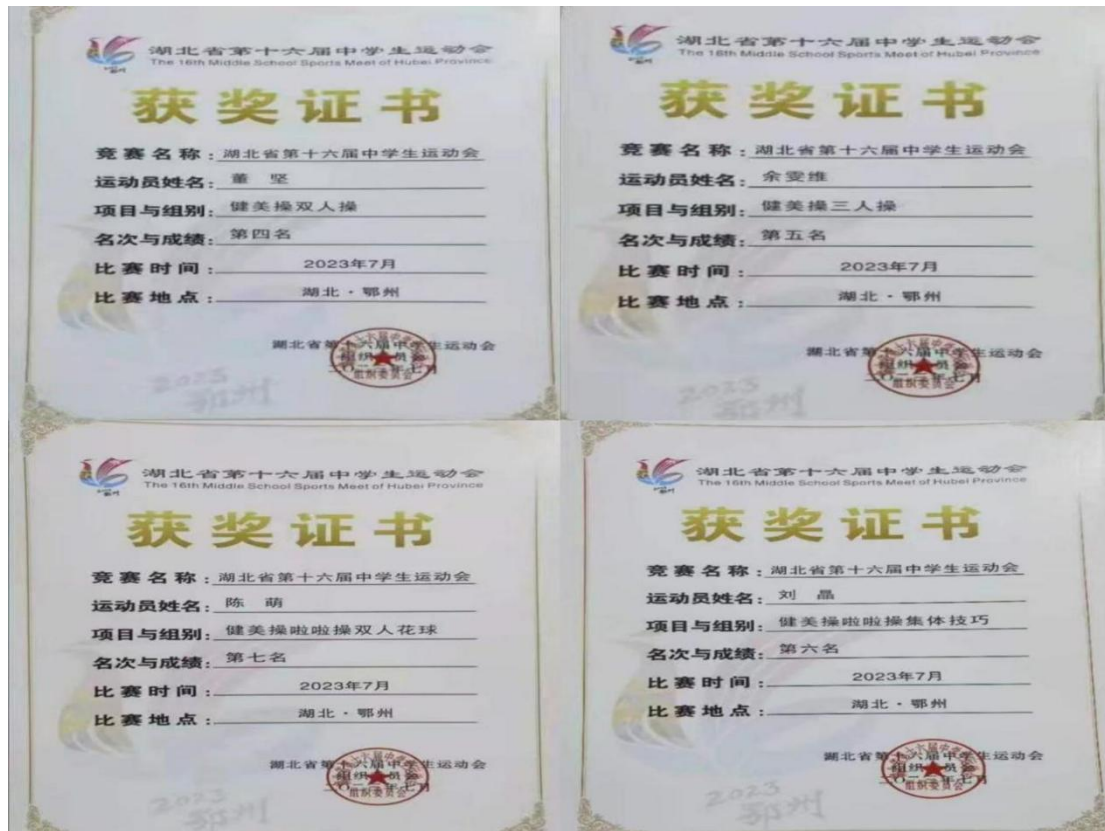 湖北省第十六届中学生运动会
The 16th Middle School Sports Meet of Hubei Province
获奖证书
竞赛名称：湖北省第十六届中学生运动会
运动员姓名：董 坚
项目与组别：健美操双人操
名次与成绩：第四名
比赛时间：2023年7月
比赛地点：湖北·鄂州
湖北省第十六届中学生运动会
组织委员会
二〇二三年七月
2023
鄂州
湖北省第十六届中学生运动会
The 16th Middle School Sports Meet of Hubei Province
获奖证书
竞赛名称：湖北省第十六届中学生运动会
运动员姓名：余雯维
项目与组别：健美操三人操
名次与成绩：第五名
比赛时间：2023年7月
比赛地点：湖北·鄂州
湖北省第十六届中学生运动会
组织委员会
二〇二三年七月
2023
鄂州
湖北省第十六届中学生运动会
The 16th Middle School Sports Meet of Hubei Province
获奖证书
竞赛名称：湖北省第十六届中学生运动会
运动员姓名：陈 萌
项目与组别：健美操啦啦操双人花球
名次与成绩：第七名
比赛时间：2023年7月
比赛地点：湖北·鄂州
湖北省第十六届中学生运动会
组织委员会
二〇二三年七月
2023
鄂州
湖北省第十六届中学生运动会
The 16th Middle School Sports Meet of Hubei Province
获奖证书
竞赛名称：湖北省第十六届中学生运动会
运动员姓名：刘 晶
项目与组别：健美操啦啦操集体技巧
名次与成绩：第六名
比赛时间：2023年7月
比赛地点：湖北·鄂州
湖北省第十六届中学生运动会
组织委员会
二〇二三年七月
2023
鄂州